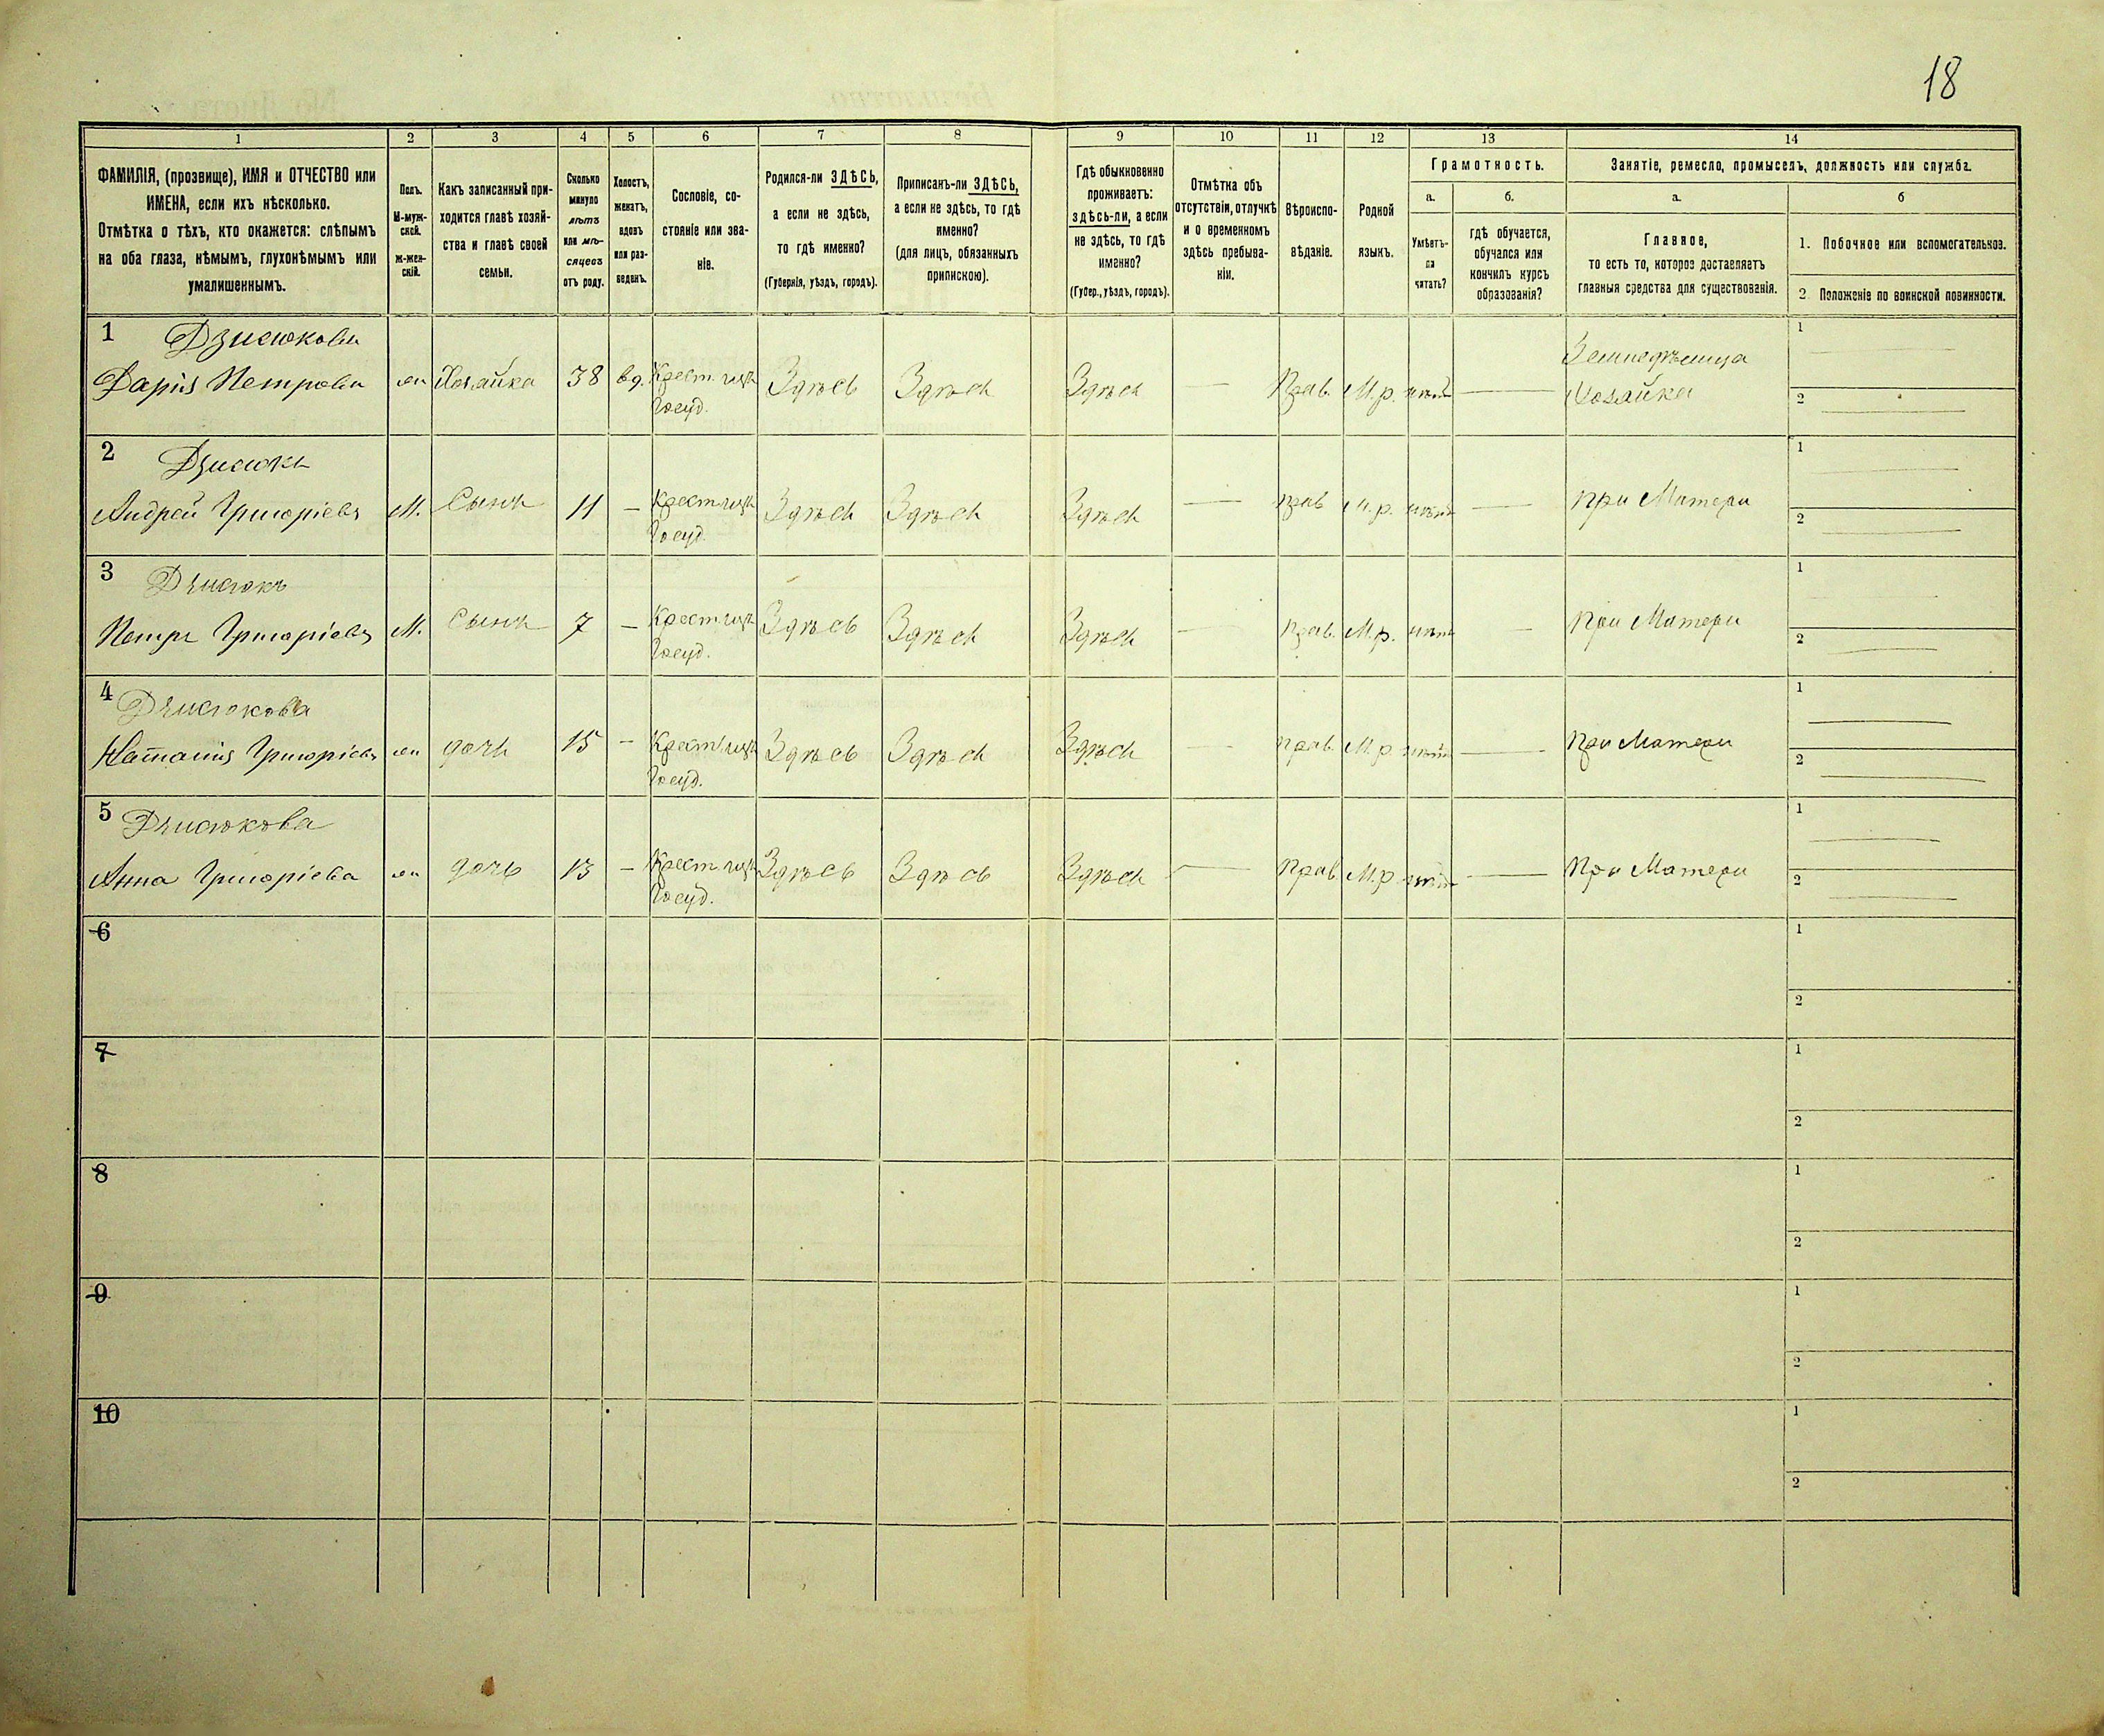 18
1 2 3 4 5 6 7 8 9 10 11 12 13 14
ФАМИЛІЯ, (прозвище), ИМЯ и ОТЧЕСТВО или
ИМЕНА, если ихъ нѣсколько.
Отмѣтка о тѣхъ, кто окажется: слѣпымъ
на оба глаза, нѣмымъ, глухонѣмымъ или
умалишеннымъ.
Полъ.
М-муж-
ской.
Ж-жен-
скій.
Какъ записанный при-
ходится главѣ хозяй-
ства и главѣ своей
семьи.
Сколько
минуло
лѣтъ
или мѣ-
сяцевъ
отъ роду.
Холостъ,
женатъ,
вдовъ
или раз-
веденъ.
Сословіе, со-
стояніе или зва-
ніе.
Родился-ли ЗДѢСЬ,
а если не здѣсь,
то гдѣ именно?
(Губернія, уѣздъ, городъ).
Приписанъ-ли ЗДѢСЬ,
а если не здѣсь, то гдѣ
именно?
(для лицъ, обязанныхъ
припискою).
Гдѣ обыкновенно
проживаетъ:
здѣсь-ли, а если
не здѣсь, то гдѣ
именно?
(Губер., уѣздъ, городъ).
Отмѣтка объ
отсутствіи, отлучкѣ
и о временномъ
здѣсь пребыва-
ніи.
Вѣроиспо-
вѣданіе.
Родной
языкъ.
Грамотность.
а.
Умѣетъ-
ли
читать?
б.
гдѣ обучается,
обучался или
кончилъ курсъ
образованія?
Занятіе, ремесло, промыселъ, должность или служба.
а.
Главное,
то есть то, которое доставляетъ
главныя средства для существованія.
б
1. Побочное или вспомогательное.
2 Положеніе по воинской повинности.
1 Дзисюкова Землед 1
Дарія Петрова Хозяйка 38 вд. Крест. Здѣсь Здѣсь Здѣсь — Прав. М.р. нѣтъ — Хозяйка 2
Госуд.
2 Дзисюкъ 1
Андрей Григоріевъ М. Сынъ 11 — Крест. Здѣсь Здѣсь Здѣсь — Прав М.р. нѣтъ — При Матери 2
Госуд.
3 Дзисюкъ 1
Петръ Григоріевъ М. Сынъ 7 — Крест. Здѣсь Здѣсь Здѣсь — Прав. М.р. нѣтъ — При Матери 2
Госуд.
4 Дзисюкова 1
Наталия Григоріева дочь 15 — Крест. Здѣсь Здѣсь Здѣсь — Прав. М.р нѣтъ — При Матери 2
Госуд.
5 Дзисюкова 1
Анна Григоріева дочь 13 — Крест. Здѣсь Здѣсь Здѣсь — Прав М.р нѣтъ — При Матери 2
Госуд.
6 1
2
7 1
2
8 1
2
9 1
2
10 1
2